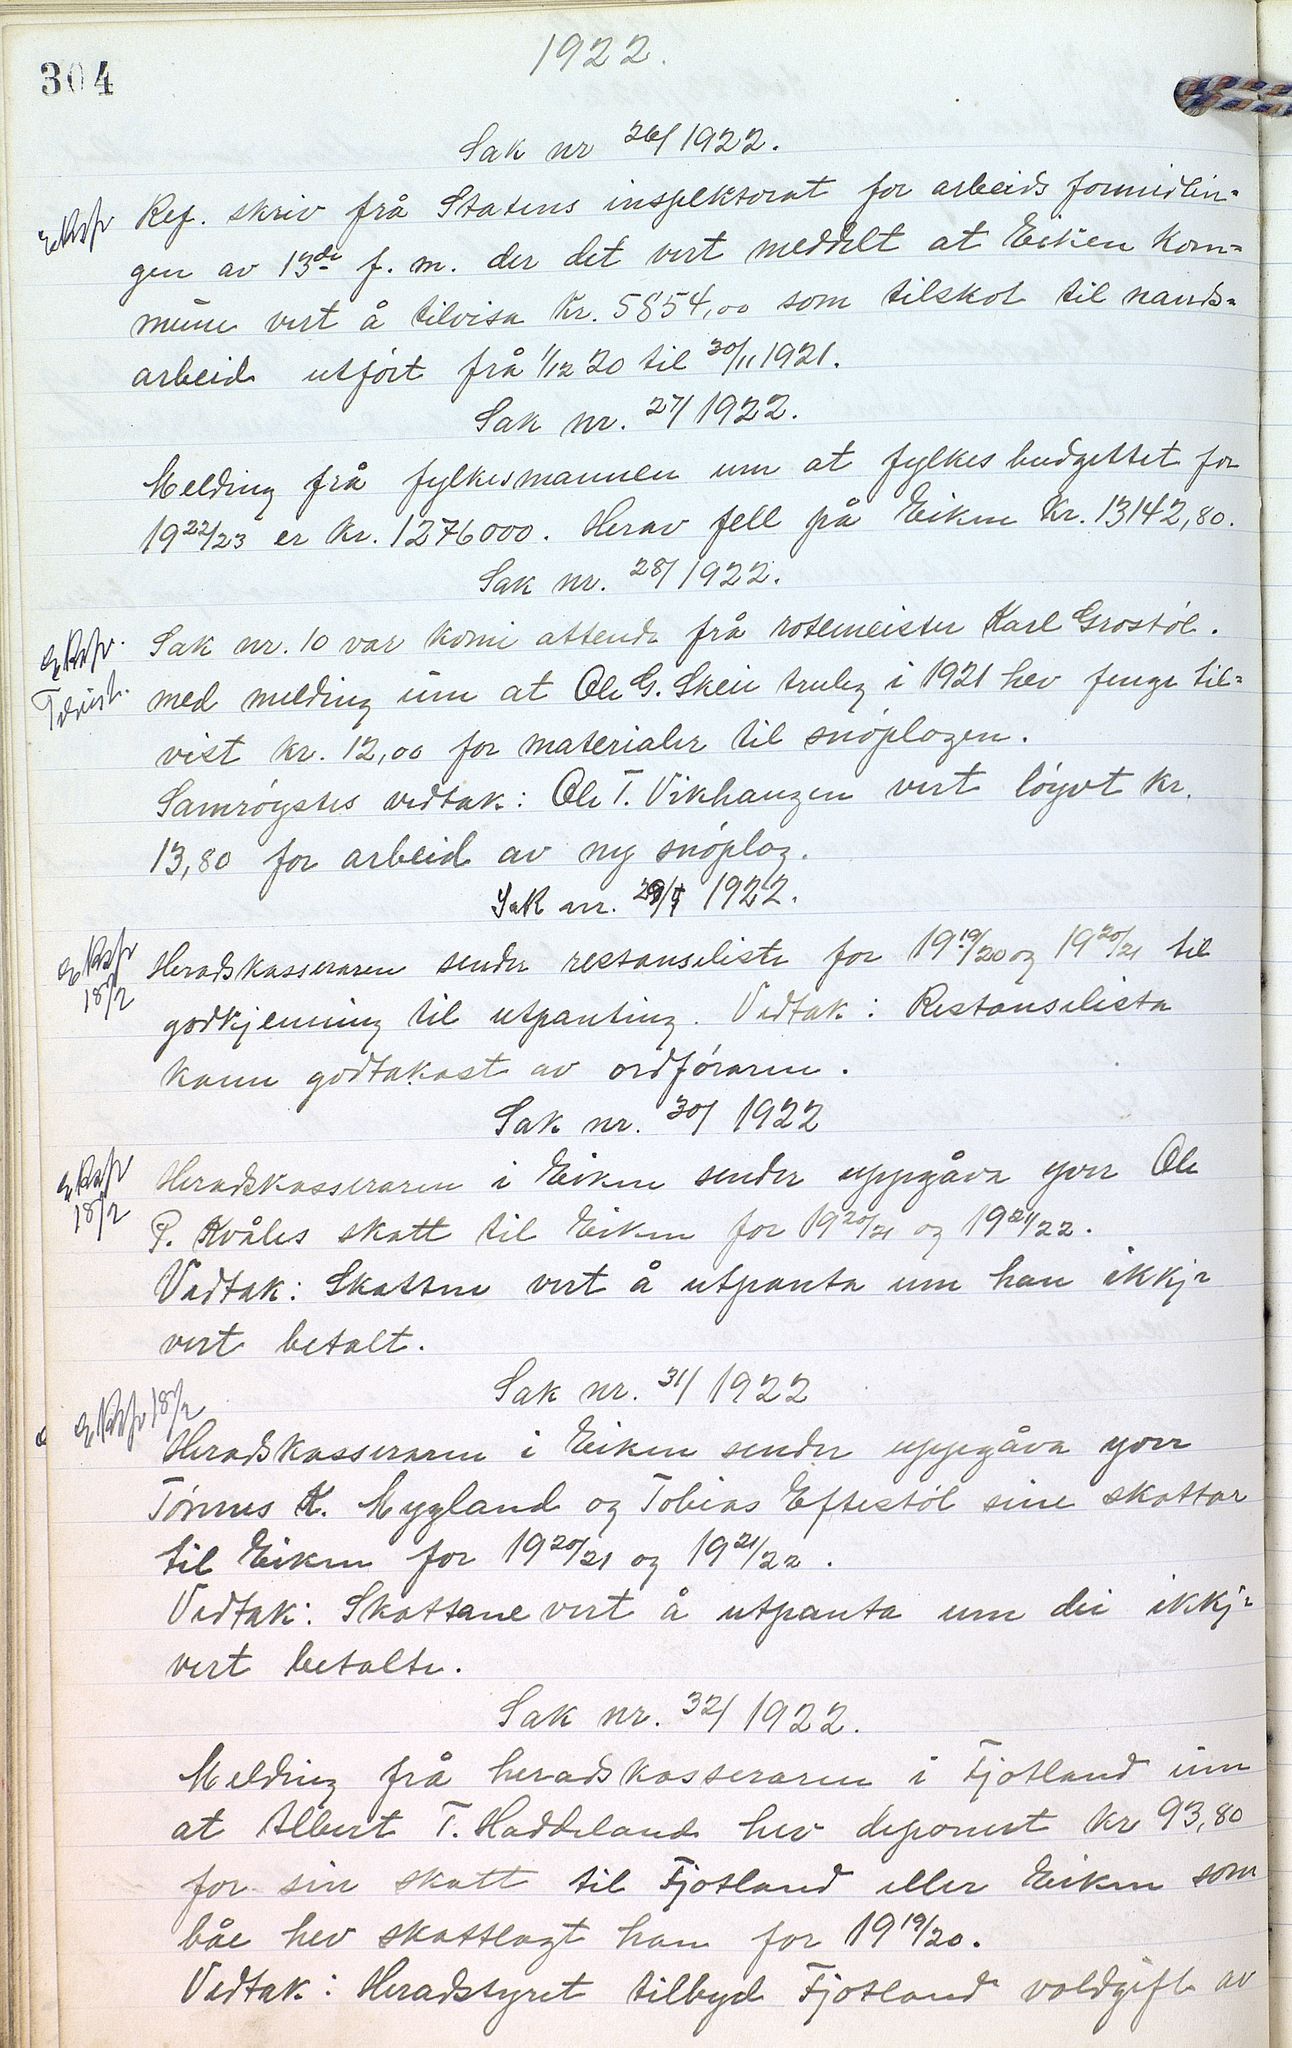 304
1922.
Sak nr 26/1922.
Ref. skriv frå Statens inspektorat for arbeids formidlin-
gen av 13de f. m. der det vert meddelt at Eiken kom-
mune vert å tilvisa kr. 5854,00 som tilskot til nauds-
arbeid utført frå 1/12 20 til 30/11 1921.
Sak nr. 27/1922.
Melding frå fylkesmannen um at fylkesbudgettet for
1922/23 er kr. 1276000. Herav fell på Eiken kr. 13142,80.
Sak nr. 28/1922.
Ekspr.
Tilvist.
Sak nr. 10 var komi attende frå rotemeister Karl Grostøl.
med melding um at Ole G. Skeie truleg i 1921 hev fenge til-
vist kr. 12,00 for materialer til snøplogen.
Samrøystes vedtak: Ole T. Vikhaugen vert løyvt kr.
13,80 for arbeid av ny snøplog.
Sak nr. 29/1922.
Ekspr
18/2
Heradskasseraren sender restanseliste for 1919/20 og 1920/21 til
godkjenning til utpanting. Vedtak: Restanselista
kann godtakast av ordføraren.
Sak nr. 30/1922
Ekspr
18/2
Heradskasseraren i Eiken sender uppgåva yver Ole
P. Kvåles skatt til Eiken for 1920/21 og 1921/22.
Vedtak: Skatten vert å utpanta um han ikkje
vert betalt.
Sak nr. 31/1922
Ekspr 18/2
Heradskasseraren i Eiken sender uppgåva yver
Tønnes K. Mygland og Tobias Eftestøl sine skattar
til Eiken for 1920/21 og 1921/22.
Vedtak: Skattane vert å utpanta um dei ikkje
vert betalte.
Sak nr. 32/1922.
Melding frå heradskasseraren i Fjotland um
at Albert T. Haddeland hev deponert kr 93,80
for sin skatt til Fjotland eller Eiken som
båe hev skattlagt han for 1919/20.
Vedtak: Heradstyret tilbyd Fjotland voldgift av